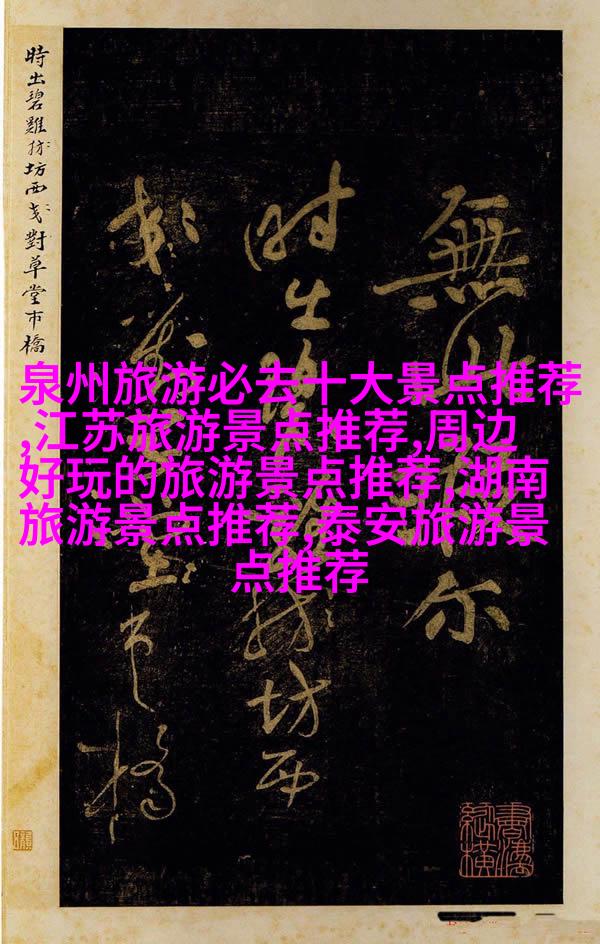 泉州旅游必去十大景点推荐
,江苏旅游景点推荐,周边
好玩的旅游景点推荐,湖南
旅游景点推荐,泰安旅游景
点推荐
無尔
時出坊西
市橋
時出碧雞坊西對草堂市橋